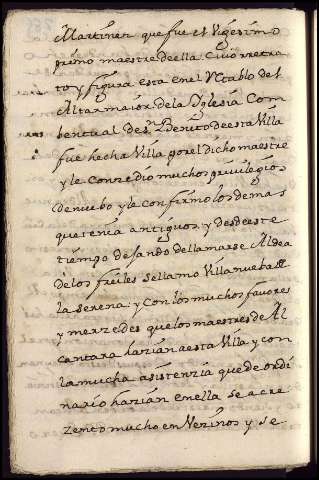 Martinez que fue el Vigesimo
primo maestre de ella Cuio retra
to y figura esta en el Retablo del
Altar maior de la Yglesia Com
bentual de Sn Benito de esta Villa
fue hecha Villa por el dicho maestre
y le Conzedio muchos privilegios
de nuebo y le confirmo los demas
que tenia antiguos y desde este
tiempo dejando de llamarse Aldea
de los freiles se llamo Villanueba de
la serena: y Con los muchos favores
y merzedes que los maestres de Al
cantara hazian a esta Villa y con
la mucha asistenzia que de ordi
nario hazian en ella se acre
zento mucho en Vezinos y se